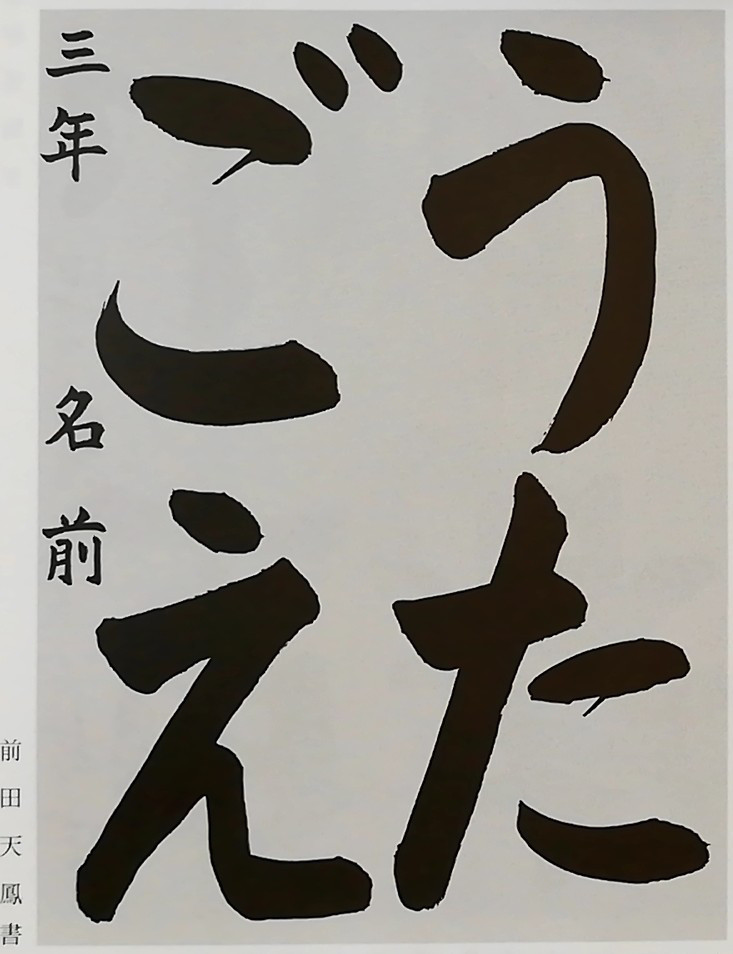 うた
ごえ
三年 名前
前田天鳳書